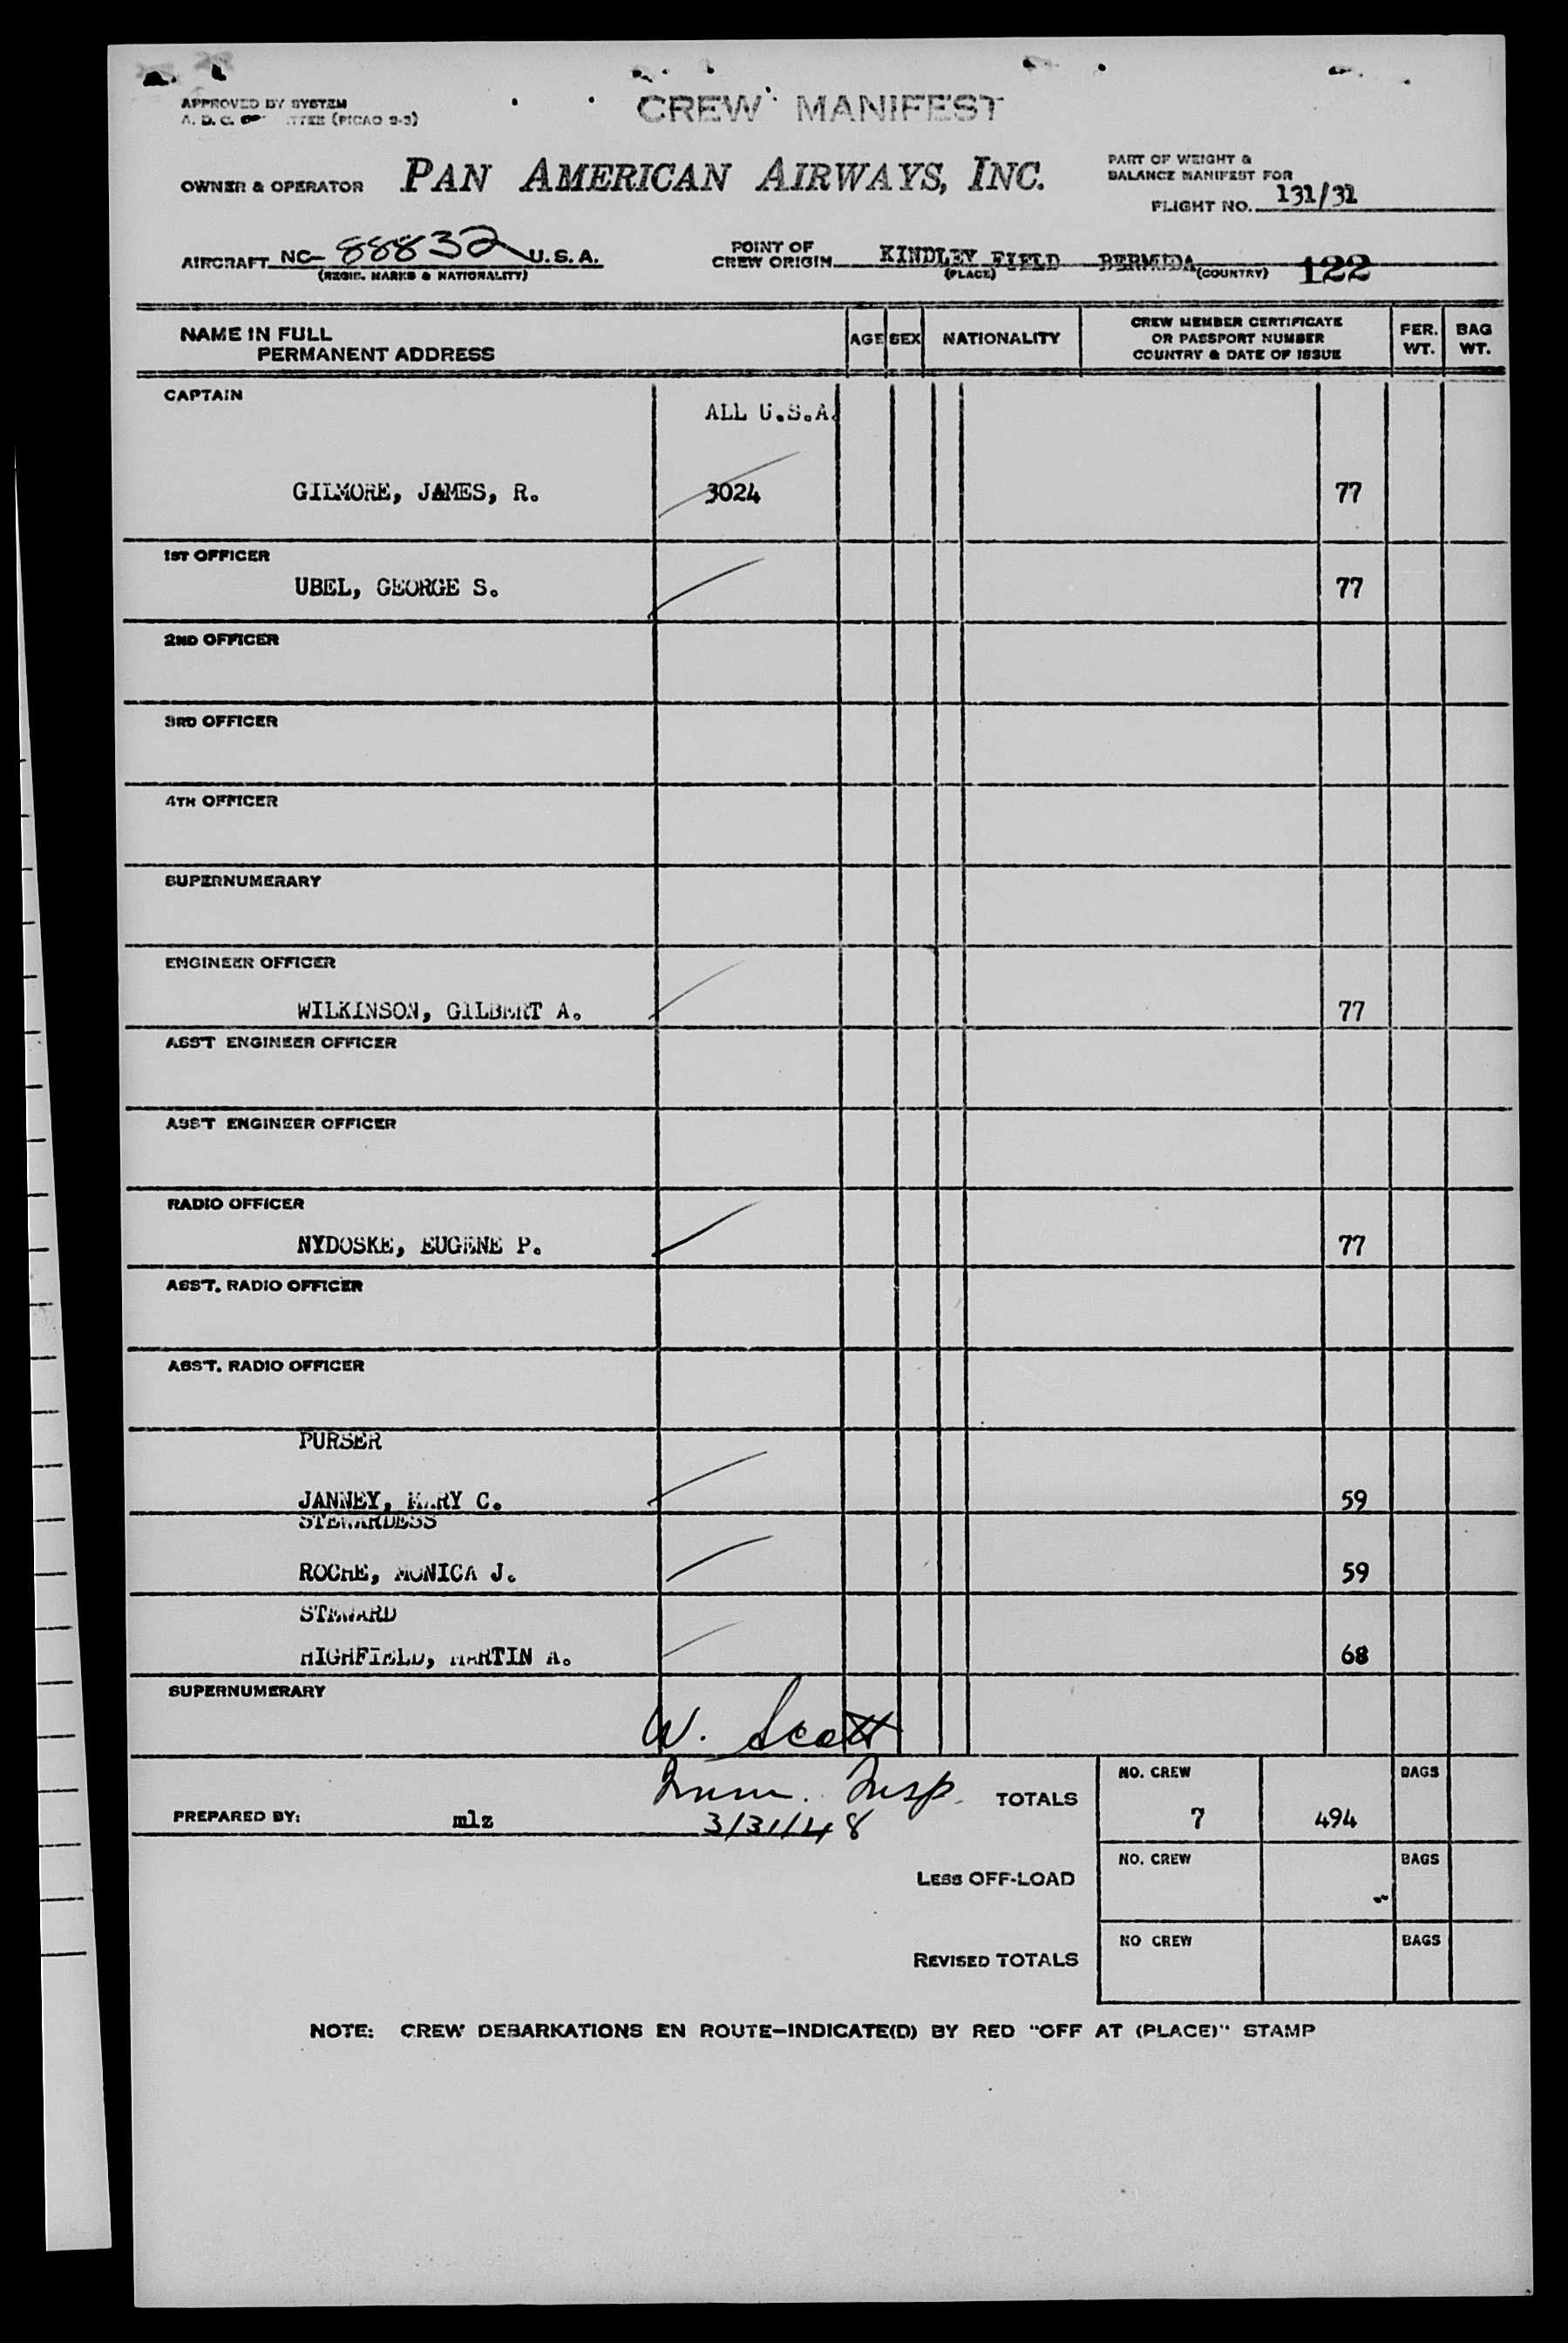 APPROVED BY SYSTEM
A. D. C. (PICAO 2-3)
CREW MANIFEST
OWNER & OPERATOR PAN AMERICAN AIRWAYS, INC.
PART OF WEIGHT &
BALANCE MANIFEST FOR
FLIGHT NO. 131/31
AIRCRAFT NC- 88832 U. S. A.
(REGIS. MARKS & NATIONALITY)
POINT OF
CREW ORIGIN KINDLEY FIELD BERMUDA 122
(PLACE) (COUNTRY)
NAME IN FULL
PERMANENT ADDRESS
AGE SEX NATIONALITY
CREW MEMBER CERTIFICATE
OR PASSPORT NUMBER
COUNTRY & DATE OF ISSUE
PER. WT.
BAG WT.
CAPTAIN
ALL U.S.A.
GILMORE, JAMES, R. 3024 77
1ST OFFICER
UBEL, GEORGE S. 77
2ND OFFICER
3RD OFFICER
4TH OFFICER
SUPERNUMERARY
ENGINEER OFFICER
WILKINSON, GILBERT A. 77
ASS'T ENGINEER OFFICER
ASS'T ENGINEER OFFICER
RADIO OFFICER
NYDOSKE, EUGENE P. 77
ASS'T. RADIO OFFICER
ASS'T. RADIO OFFICER
PURSER
JANNEY, MARY C. 59
STEWARDESS
ROCHE, MONICA J. 59
STEWARD
HIGHFIELD, MARTIN A. 68
SUPERNUMERARY
W. Scott
Imm. Insp.
3/31/48
PREPARED BY: mlz
TOTALS
NO. CREW BAGS
7 494
LESS OFF-LOAD
NO. CREW BAGS
REVISED TOTALS
NO CREW BAGS
NOTE: CREW DEBARKATIONS EN ROUTE—INDICATE(D) BY RED "OFF AT (PLACE)" STAMP